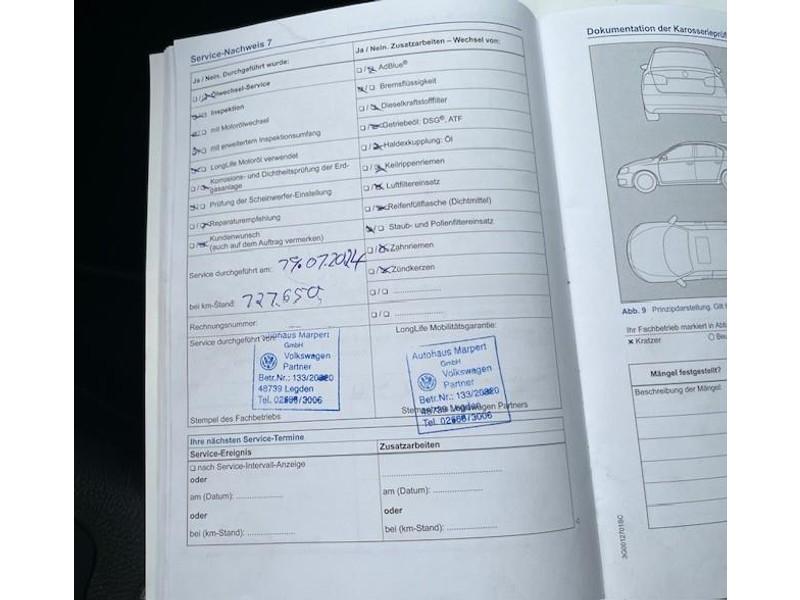 Service-Nachweis 7
Ja / Nein. Durchgeführt wurde:
Ölwechsel-Service
Inspektion
mit Motorölwechsel
mit erweitertem Inspektionsumfang
LongLife Motoröl verwendet
Korrosions- und Dichtheitsprüfung der Erd-
gasanlage
Prüfung der Scheinwerfer-Einstellung
Reparaturempfehlung
Kundenwunsch
(auch auf dem Auftrag vermerken)
Service durchgeführt am: 19.07.2024
bei km-Stand: 127.650,
Rechnungsnummer:
Service durchgeführt von:
Autohaus Marpert
GmbH
Volkswagen
Partner
Betr.Nr.: 133/20320
48739 Legden
Tel. 02566/3006
Stempel des Fachbetriebs
Ja / Nein. Zusatzarbeiten – Wechsel von:
AdBlue®
Bremsflüssigkeit
Dieselkraftstofffilter
Getriebeöl: DSG®, ATF
Haldexkupplung: Öl
Keilrippenriemen
Luftfiltereinsatz
Reifenfüllflasche (Dichtmittel)
Staub- und Pollenfiltereinsatz
Zahnriemen
Zündkerzen
LongLife Mobilitätsgarantie:
Autohaus Marpert
GmbH
Volkswagen
Partner
Betr.Nr.: 133/20320
48739 Legden
Tel. 02566/3006
Volkswagen Partners
Ihre nächsten Service-Termine
Service-Ereignis
nach Service-Intervall-Anzeige
oder
am (Datum):
oder
bei (km-Stand):
Zusatzarbeiten
am (Datum):
oder
bei (km-Stand):
Dokumentation der
Abb. 9 Prinzipdarstellung. Gilt
Ihr Fachbetrieb markiert in
Kratzer
Mängel festgestellt?
Beschreibung der Mängel:
3G0012701BC